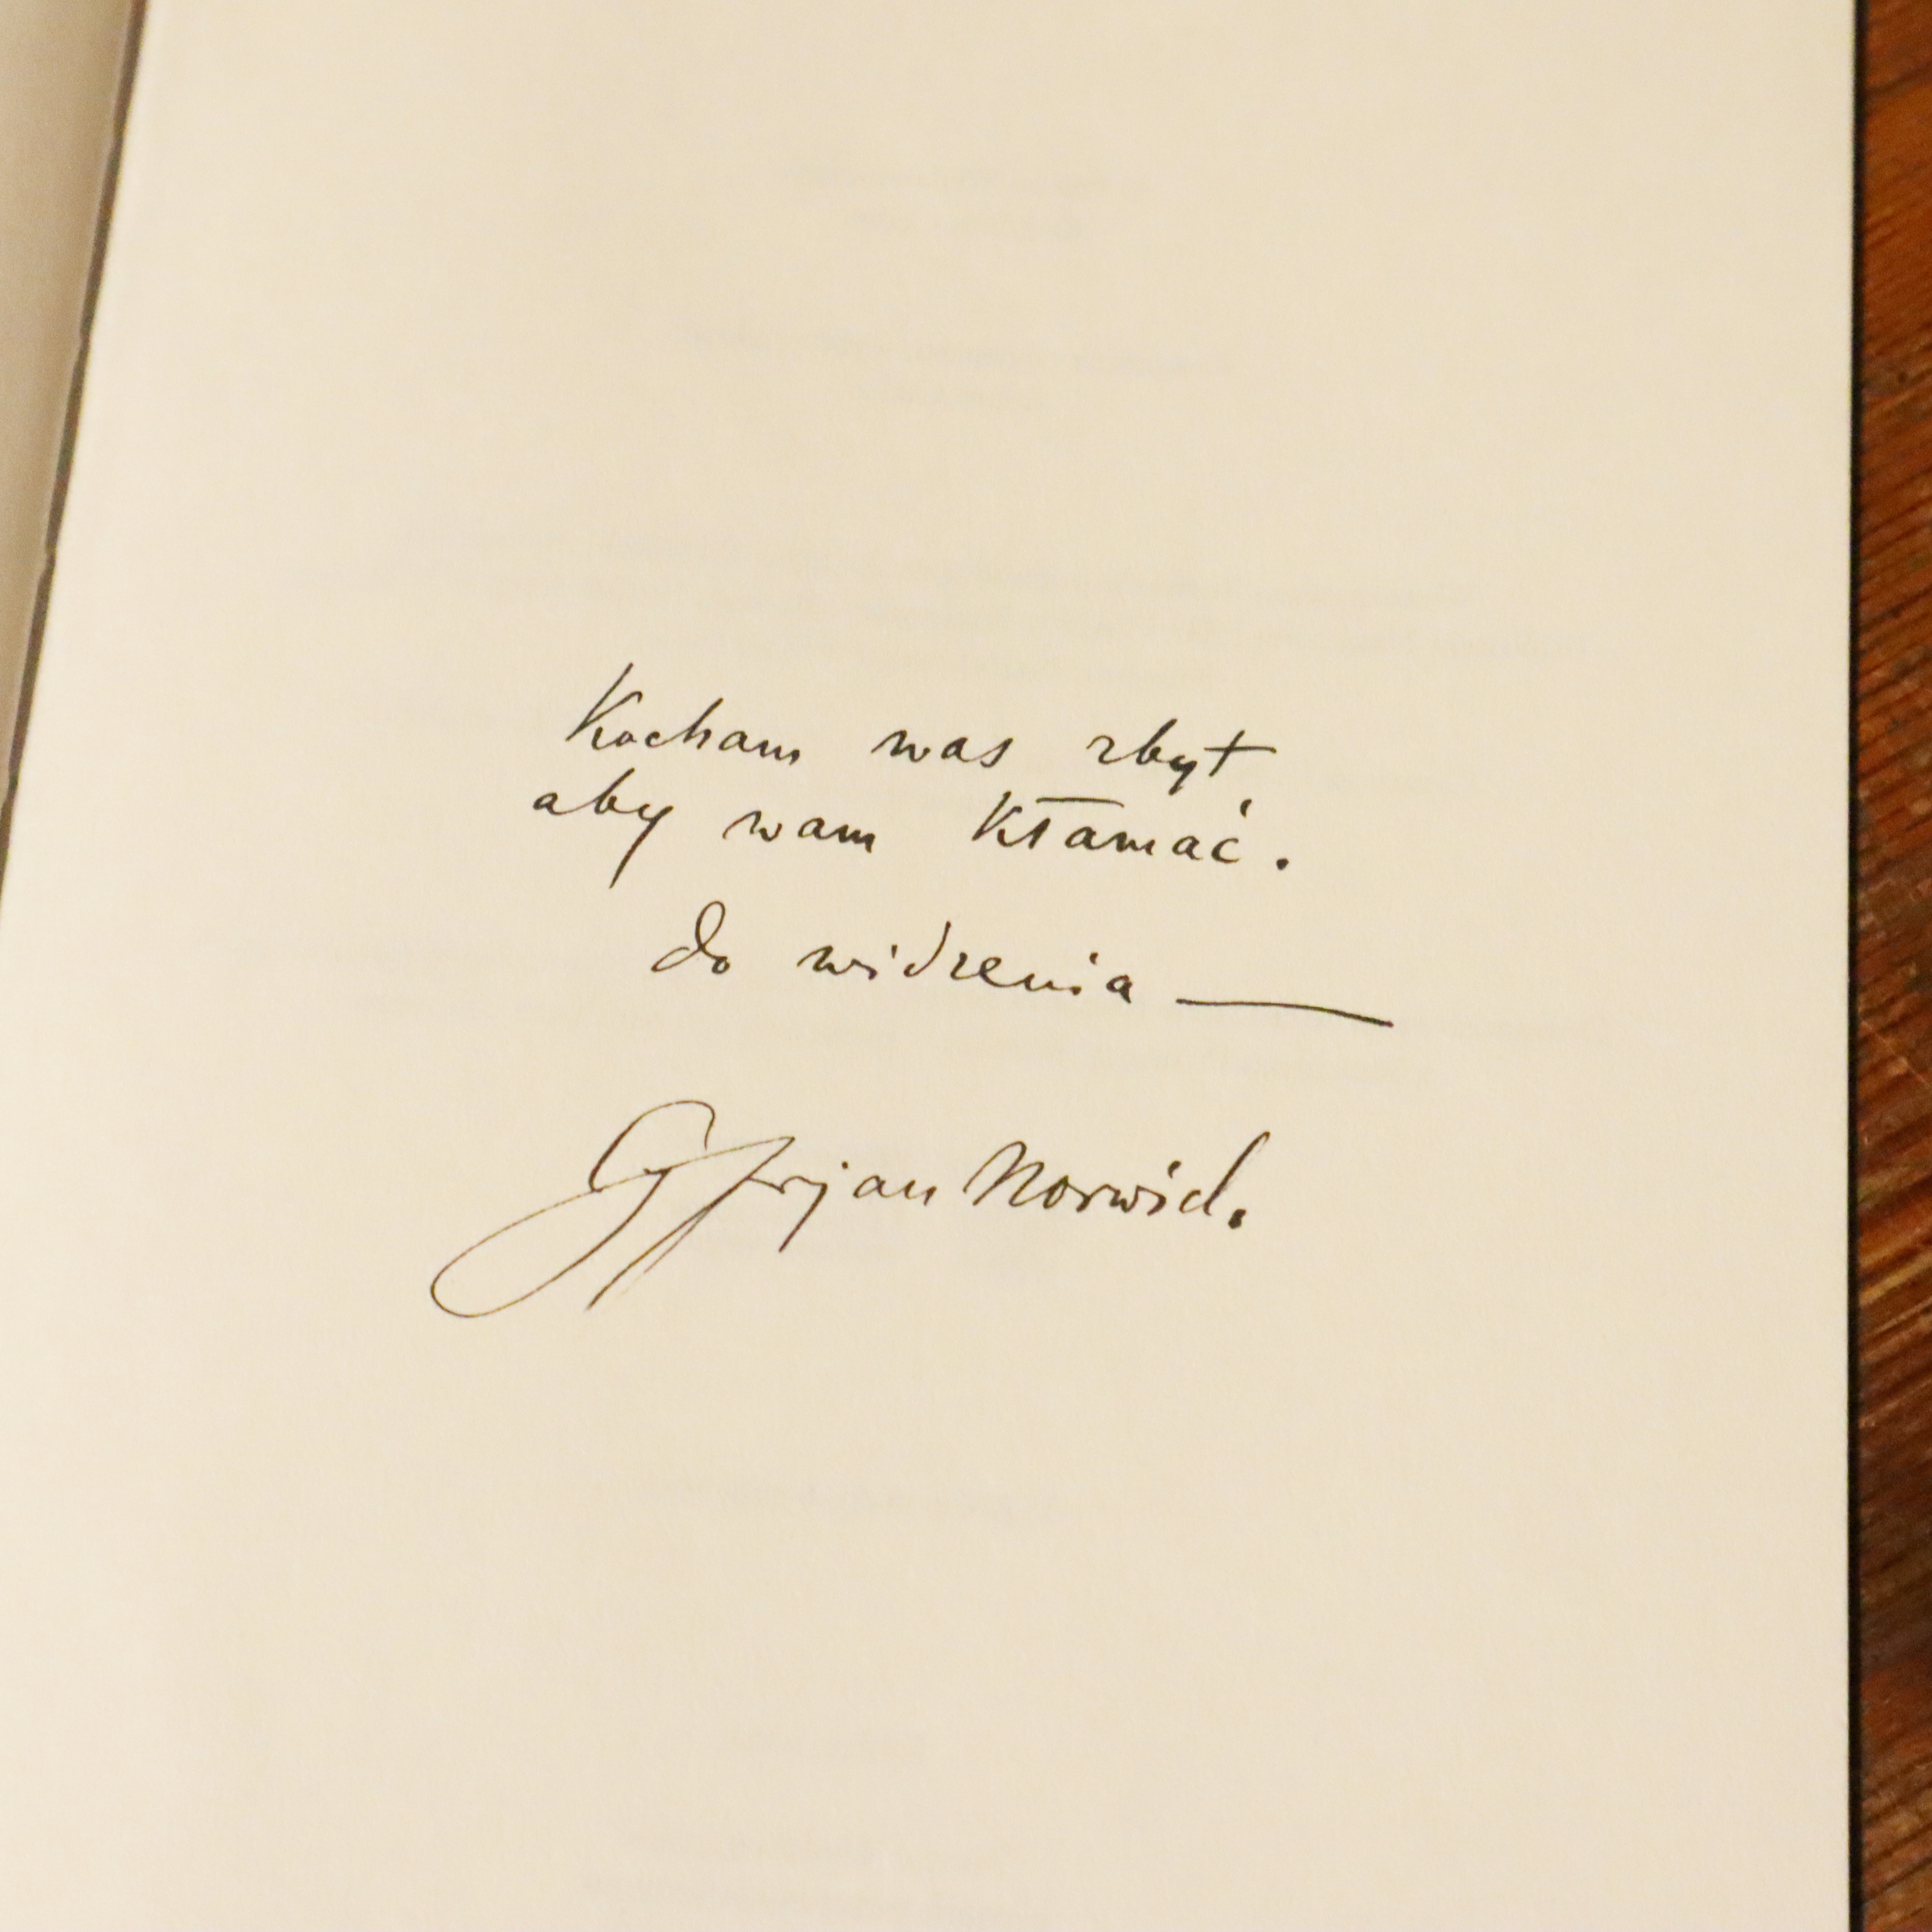 Kocham was zbyt
aby wam kłamać.
do widzenia —
Cyprjan Norwid.